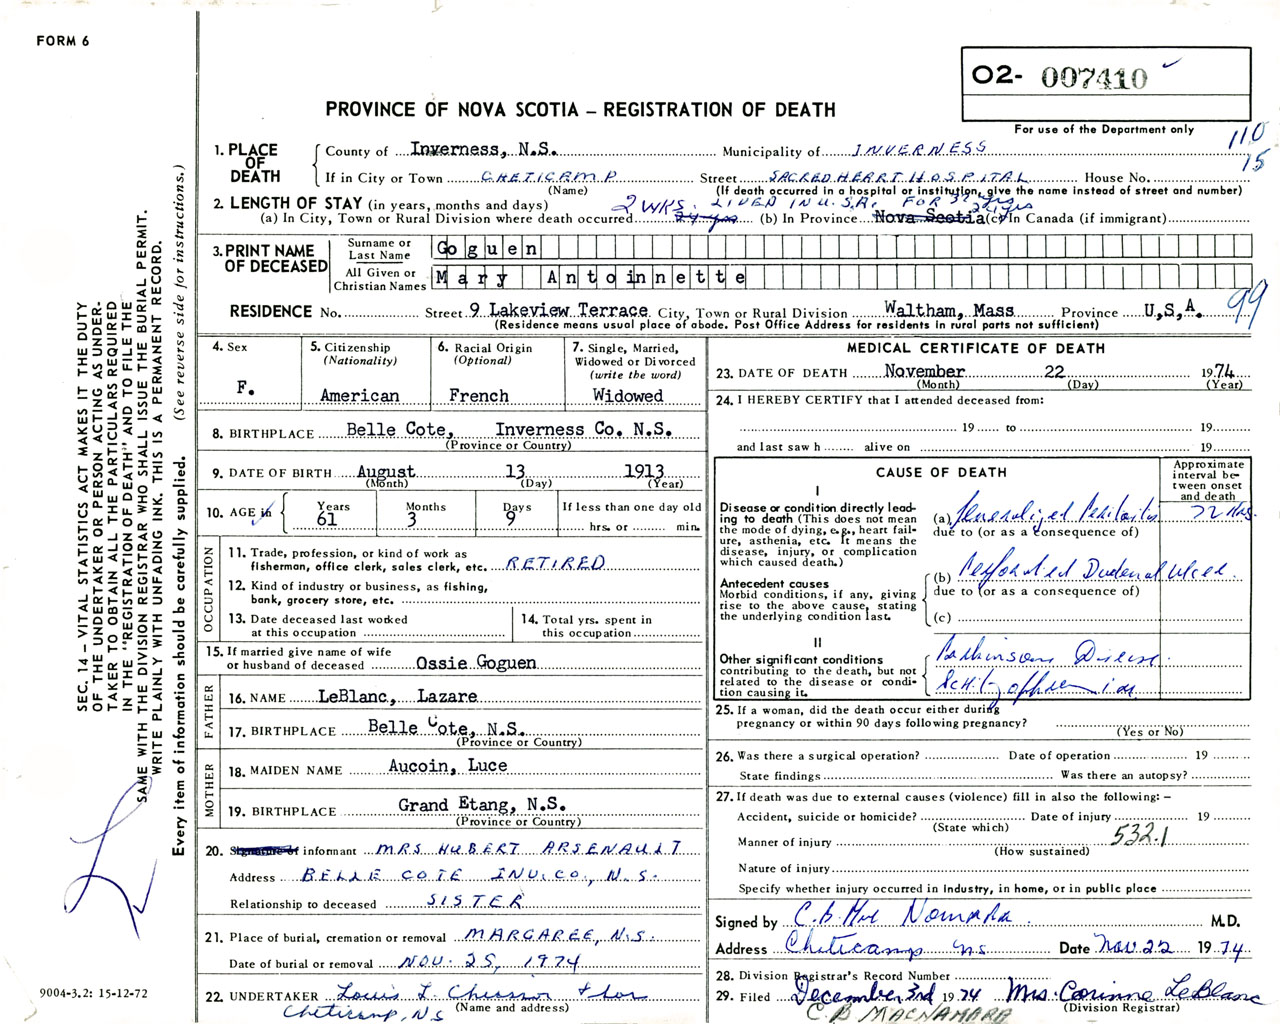 FORM 6
O2- 007410
For use of the Department only
110
15
PROVINCE OF NOVA SCOTIA – REGISTRATION OF DEATH
1. PLACE OF DEATH
County of Inverness, N.S. Municipality of INVERNESS
If in City or Town CHETICAMP Street SACRED HEART HOSPITAL House No.
(Name) (If death occurred in a hospital or institution, give the name instead of street and number)
2. LENGTH OF STAY (in years, months and days) 2 WKS. LIVED IN U.S.A. FOR
(a) In City, Town or Rural Division where death occurred (b) In Province Nova Scotia (c) In Canada (if immigrant)
3. PRINT NAME OF DECEASED
Surname or Last Name Goguen
All Given or Christian Names Mary Antoinnette
RESIDENCE No. Street 9 Lakeview Terrace City, Town or Rural Division Waltham, Mass Province U,S,A. 99
(Residence means usual place of abode. Post Office Address for residents in rural parts not sufficient)
4. Sex F.
5. Citizenship (Nationality) American
6. Racial Origin (Optional) French
7. Single, Married, Widowed or Divorced (write the word) Widowed
8. BIRTHPLACE Belle Cote, Inverness Co. N.S.
(Province or Country)
9. DATE OF BIRTH August 13 1913
(Month) (Day) (Year)
10. AGE in Years 61 Months 3 Days 9 If less than one day old hrs. or min.
OCCUPATION
11. Trade, profession, or kind of work as fisherman, office clerk, sales clerk, etc. RETIRED
12. Kind of industry or business, as fishing, bank, grocery store, etc.
13. Date deceased last worked at this occupation
14. Total yrs. spent in this occupation
15. If married give name of wife or husband of deceased Ossie Goguen
FATHER
16. NAME LeBlanc, Lazare
17. BIRTHPLACE Belle Cote, N.S.
(Province or Country)
MOTHER
18. MAIDEN NAME Aucoin, Luce
19. BIRTHPLACE Grand Etang, N.S.
(Province or Country)
20. Signature of informant MRS HUBERT ARSENAULT
Address BELLE COTE INV. CO., N.S.
Relationship to deceased SISTER
21. Place of burial, cremation or removal MARGAREE, N.S.
Date of burial or removal NOV. 25, 1974
22. UNDERTAKER Louis L
(Name and address)
Cheticamp, NS
MEDICAL CERTIFICATE OF DEATH
23. DATE OF DEATH November 22 1974
(Month) (Day) (Year)
24. I HEREBY CERTIFY that I attended deceased from:
19 to 19
and last saw h alive on 19
CAUSE OF DEATH
Approximate interval between onset and death
I
Disease or condition directly leading to death (This does not mean the mode of dying, e.g., heart failure, asthenia, etc. It means the disease, injury, or complication which caused death.)
(a) Generalized Peritonitis 72 Hrs.
due to (or as a consequence of)
Antecedent causes
Morbid conditions, if any, giving rise to the above cause, stating the underlying condition last.
(b) Perforated Duodenal Ulcer.
due to (or as a consequence of)
(c)
II
Other significant conditions contributing to the death, but not related to the disease or condition causing it.
Parkinsons Disease.
Schizophrenia
25. If a woman, did the death occur either during pregnancy or within 90 days following pregnancy?
(Yes or No)
26. Was there a surgical operation? Date of operation 19
State findings Was there an autopsy?
27. If death was due to external causes (violence) fill in also the following: –
Accident, suicide or homicide? Date of injury 19
(State which)
Manner of injury 532.1
(How sustained)
Nature of injury
Specify whether injury occurred in industry, in home, or in public place
Signed by C.B. Mac Namara M.D.
Address Cheticamp NS Date Nov 22 1974
28. Division Registrar's Record Number
29. Filed December 3rd 1974 Mrs. Corinne LeBlanc
(Division Registrar)
C B MACNAMARA
SEC. 14 – VITAL STATISTICS ACT MAKES IT THE DUTY
OF THE UNDERTAKER OR PERSON ACTING AS UNDER-
TAKER TO OBTAIN ALL THE PARTICULARS REQUIRED
IN THE "REGISTRATION OF DEATH" AND TO FILE THE
SAME WITH THE DIVISION REGISTRAR WHO SHALL ISSUE THE BURIAL PERMIT.
WRITE PLAINLY WITH UNFADING INK. THIS IS A PERMANENT RECORD.
Every item of information should be carefully supplied. (See reverse side for instructions.)
9004-3.2: 15-12-72